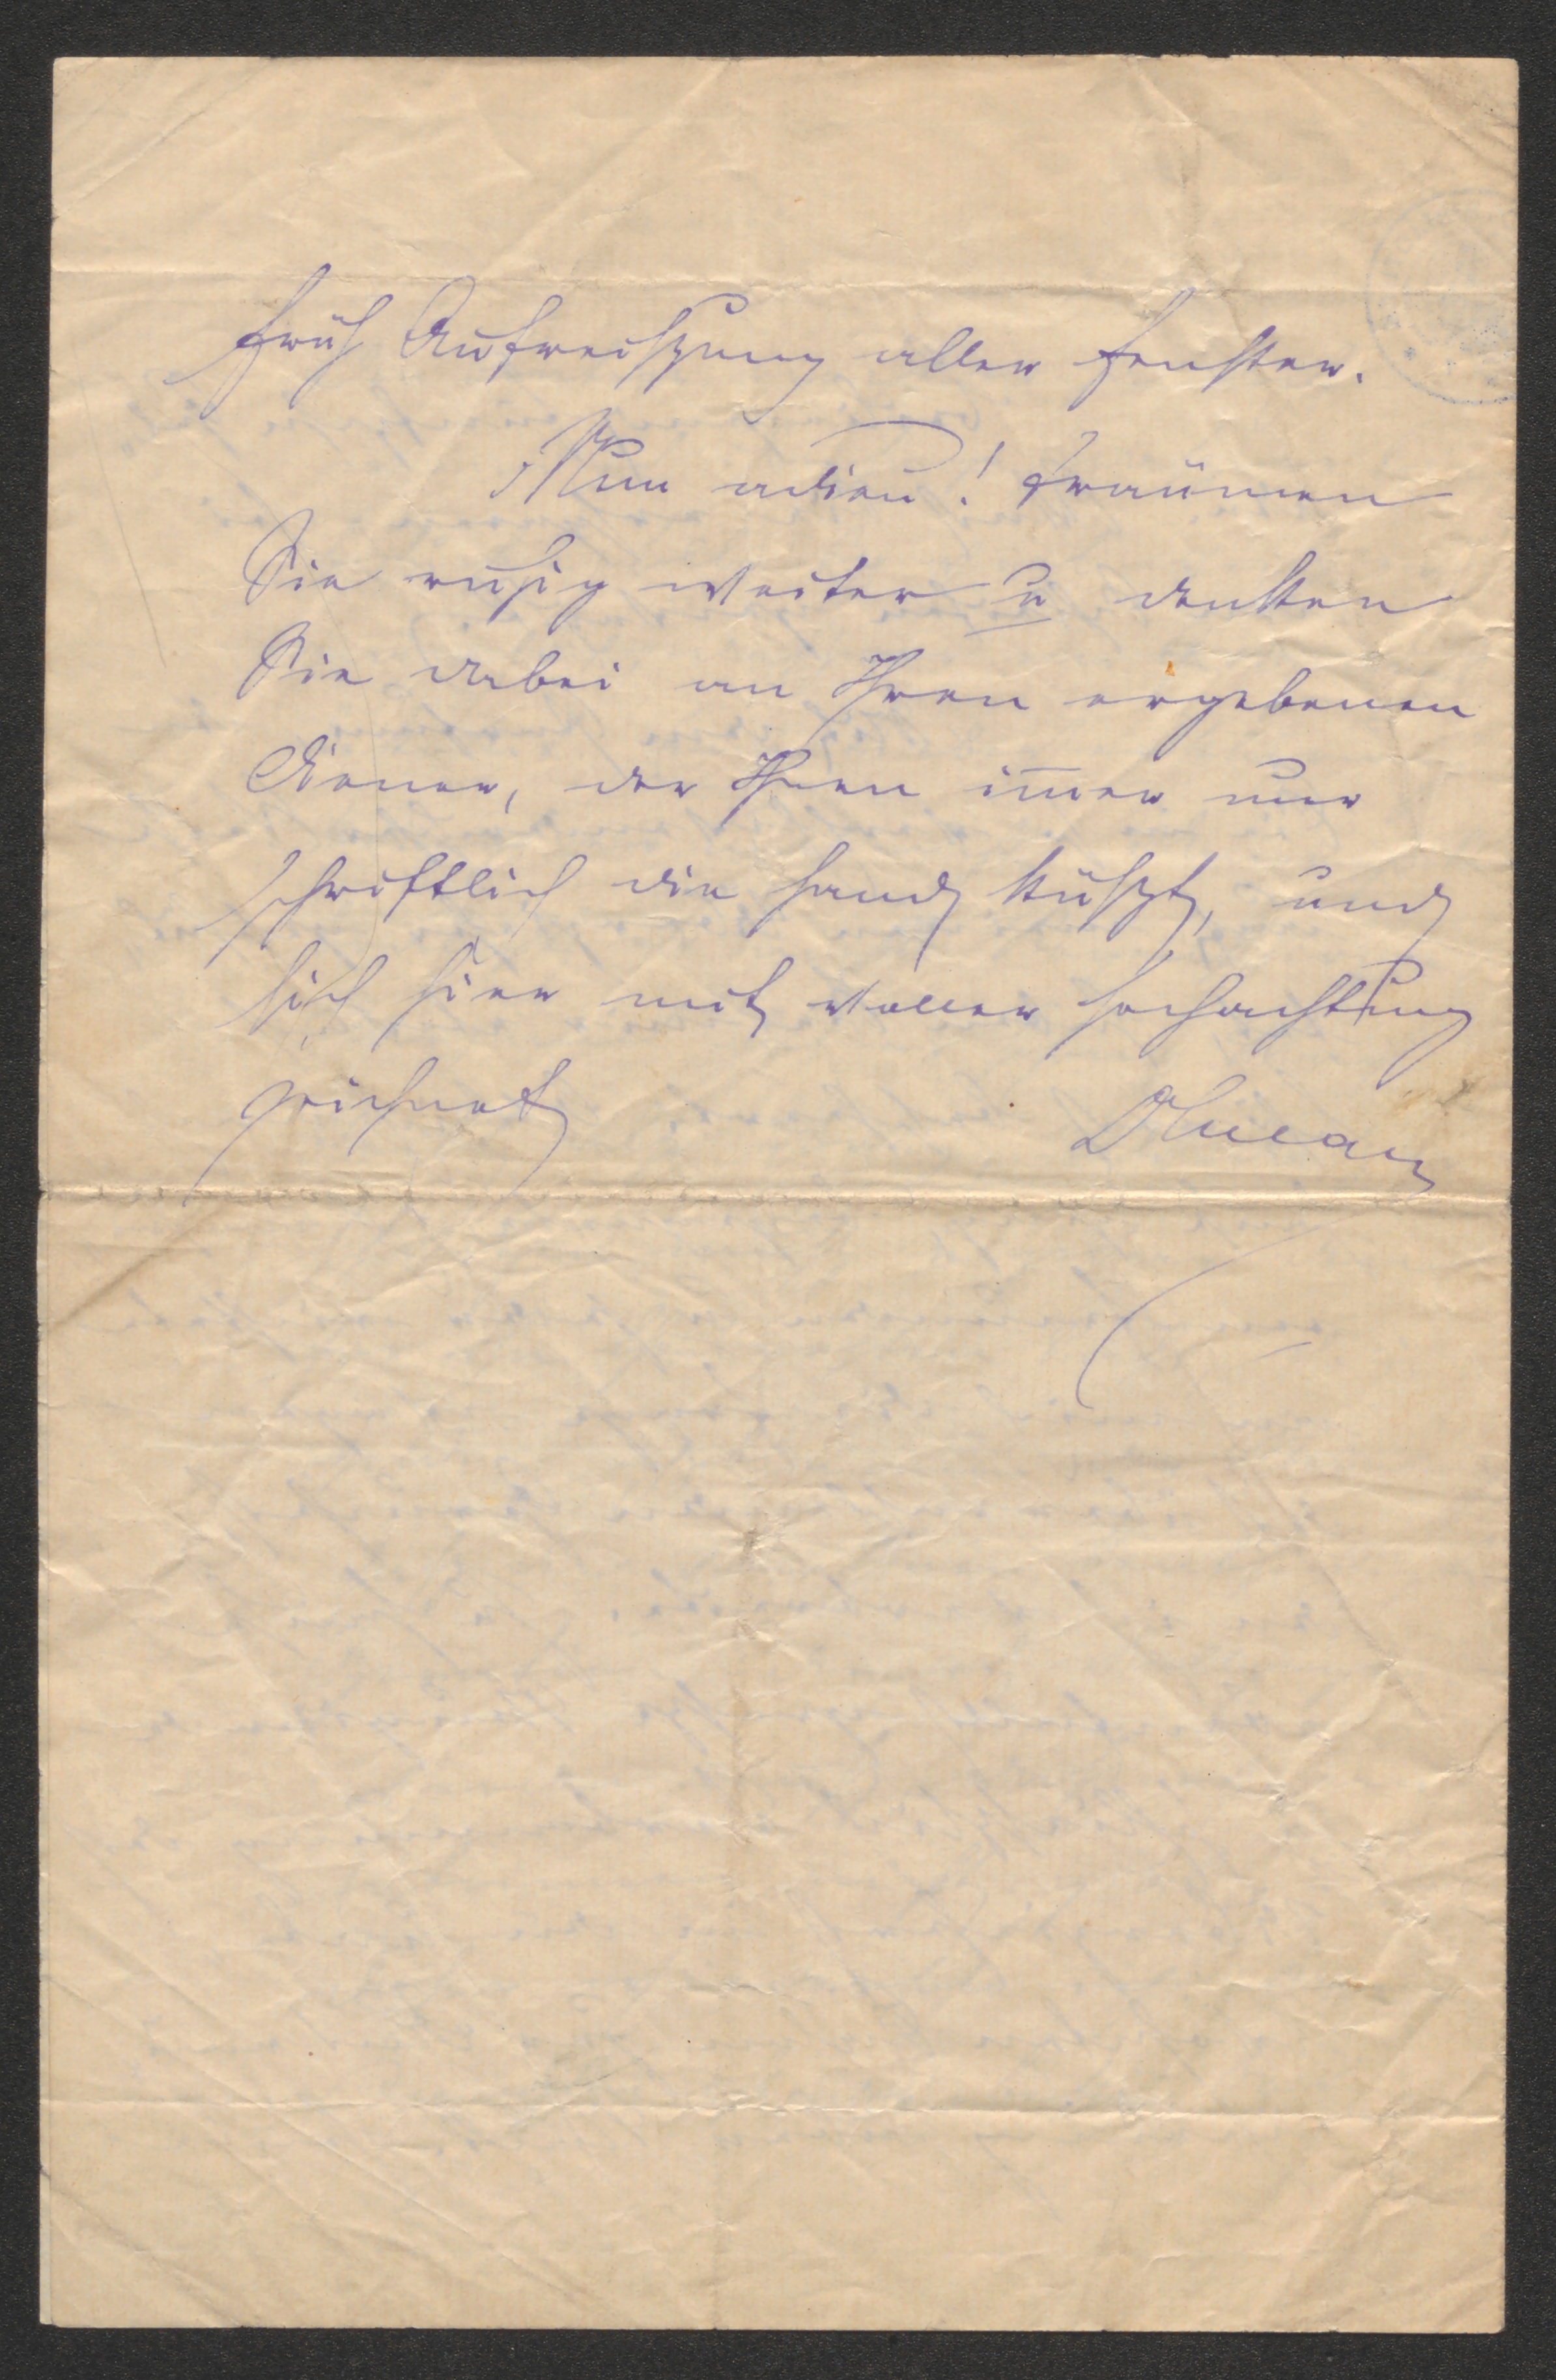 früh Aufreißung aller Fenster.
Nun adieu! Träumen
Sie ruhig weiter u denken
Sie dabei an Ihren ergebenen
Diener, der Ihnen im̅er nur
schriftlich die Hand küßt, und
sich hier mit voller Hochachtung
zeichnet